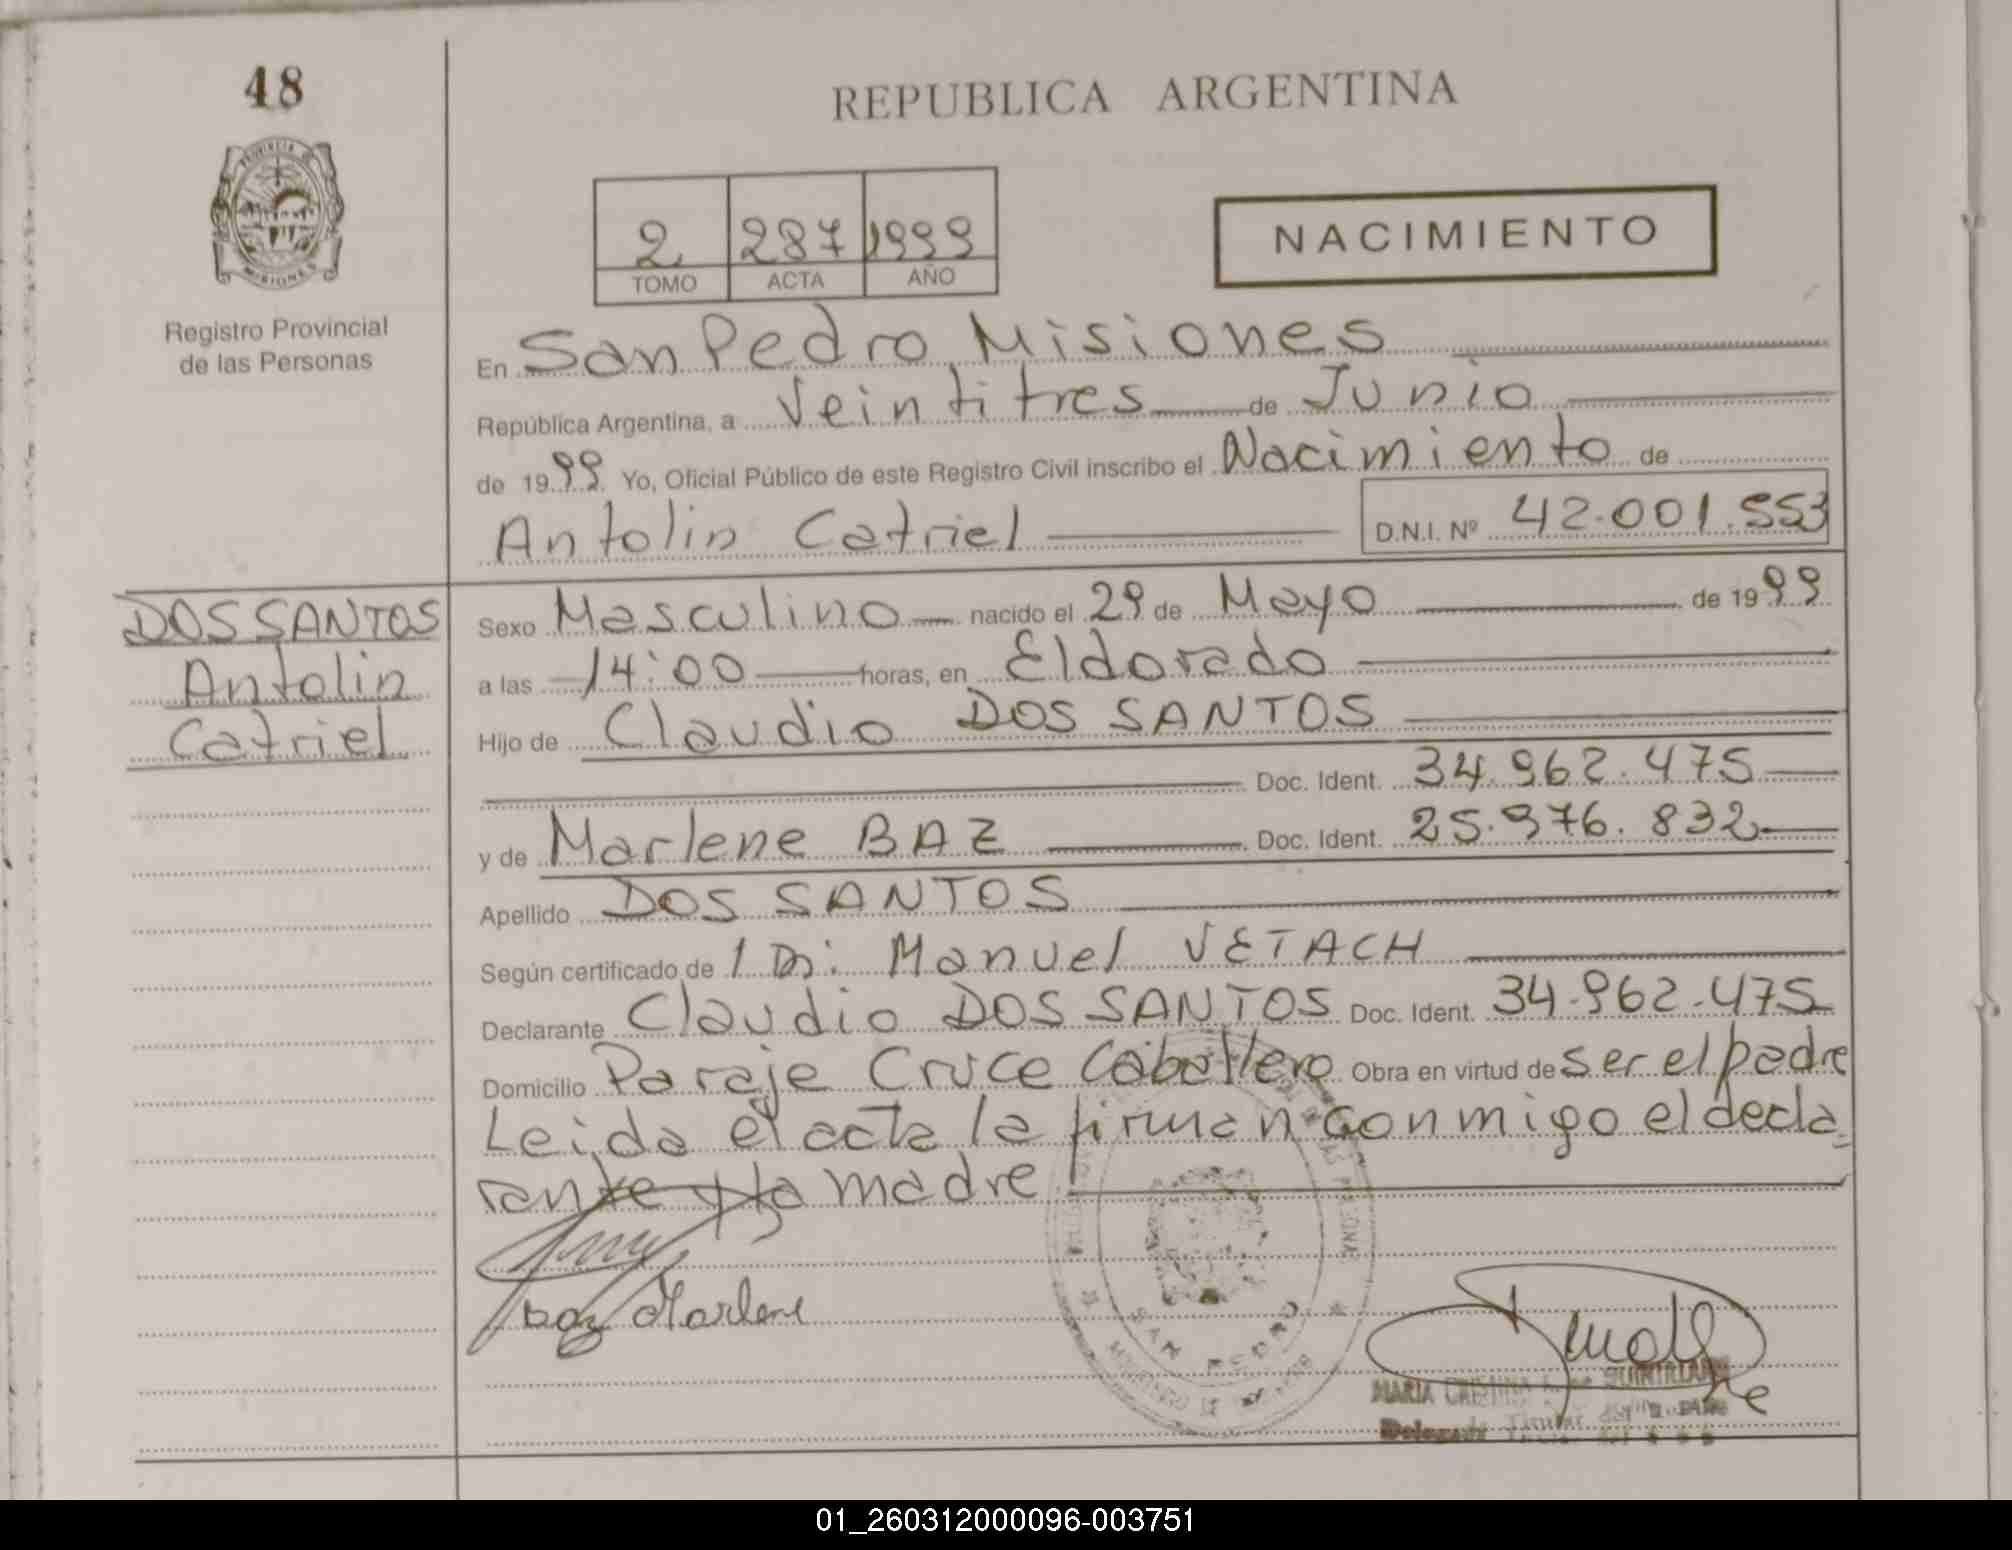 48
REPUBLICA ARGENTINA
PROVINCIA DE
MISIONES
2 287 1999
TOMO ACTA AÑO
NACIMIENTO
Registro Provincial
de las Personas
En San Pedro Misiones
República Argentina, a Veintitres de Junio
de 1999 Yo, Oficial Público de este Registro Civil inscribo el Nacimiento de
Antolin Catriel D.N.I. Nº 42.001.553
DOS SANTOS
Antolin
Catriel
Sexo Masculino nacido el 29 de Mayo de 1999
a las 14:00 horas, en Eldorado
Hijo de Claudio DOS SANTOS
Doc. Ident. 34.962.475
y de Marlene BAZ Doc. Ident. 25.976.832
Apellido DOS SANTOS
Según certificado de Manuel VETACH
Declarante Claudio DOS SANTOS Doc. Ident. 34.962.475
Domicilio Paraje Cruce Caballero Obra en virtud de ser el padre
Leida el acta la firman conmigo el decla
rante y la madre
Baz Marlene
SAN PEDRO
MARIA CRISTINA
Delegada Titular
01_260312000096-003751